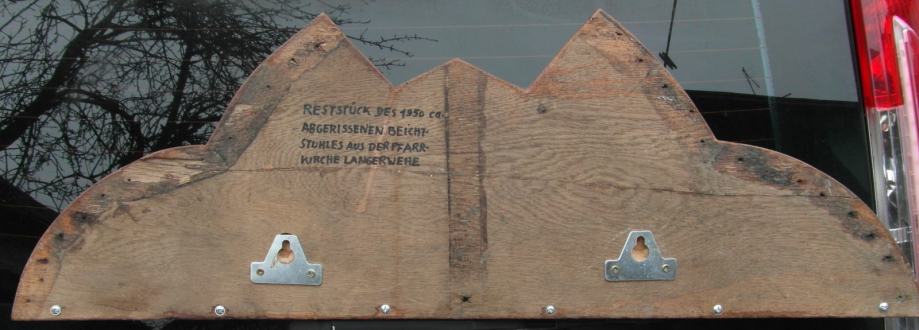 RESTSTÜCK DES 1950 ca.
ABGERISSENEN BEICHT-
STUHLES AUS DER PFARR-
KIRCHE LANGERWEHE